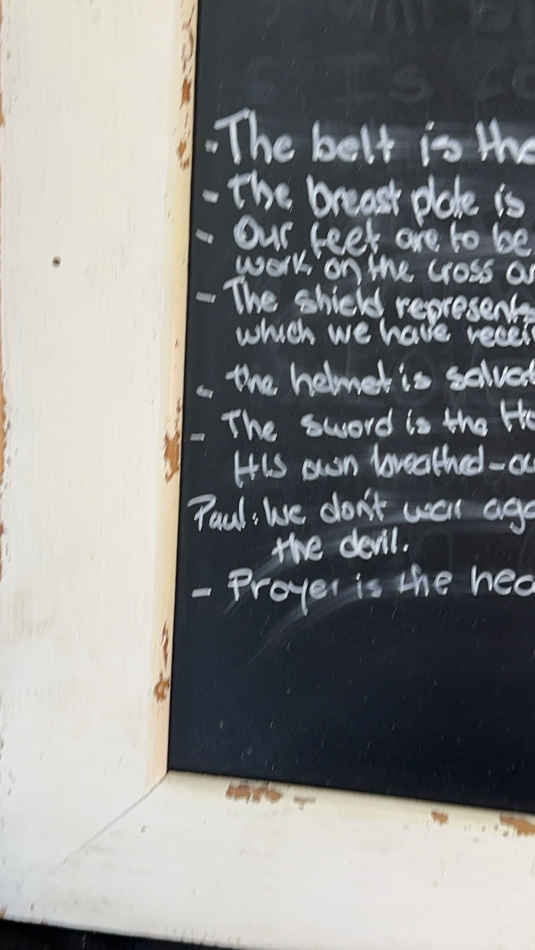 - The belt is the
- The breast plate is
- Our feet are to be
work on the cross
- The shield represents
which we have
- the helmet is
- The sword is the
His own breathed-
Paul: We don't war
the devil.
- Prayer is the